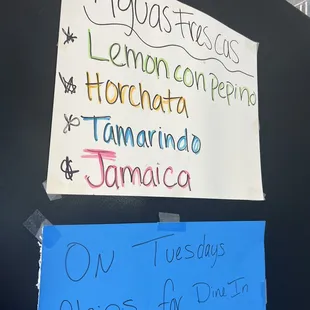 Aguas Frescas
Lemon con pepino
Horchata
Tamarindo
Jamaica
ON Tuesdays
for Dine In